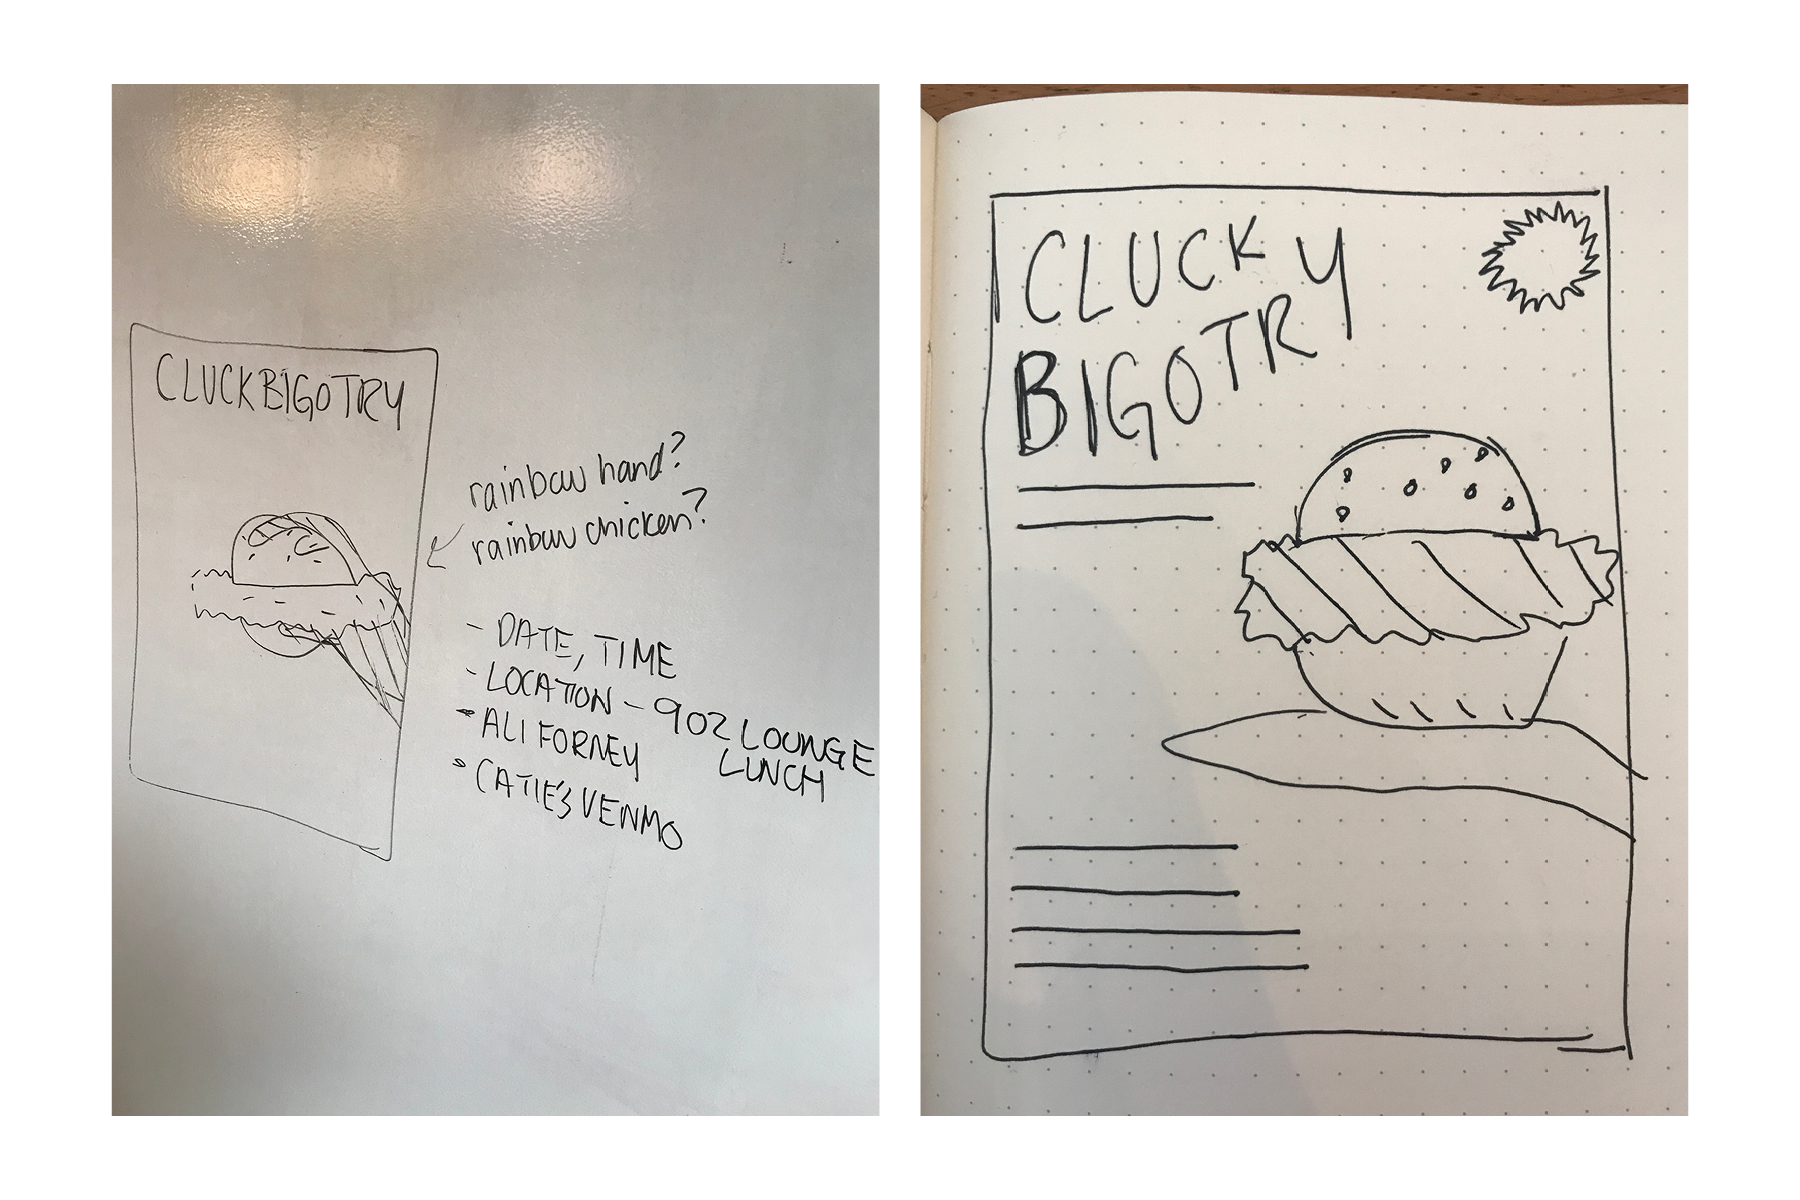 CLUCKBIGOTRY
rainbow hand?
rainbow chicken?
- DATE, TIME
- LOCATION - 902 LOUNGE
LUNCH
• ALI FORNEY
• CATIE'S VENMO
CLUCKY
BIGOTRY